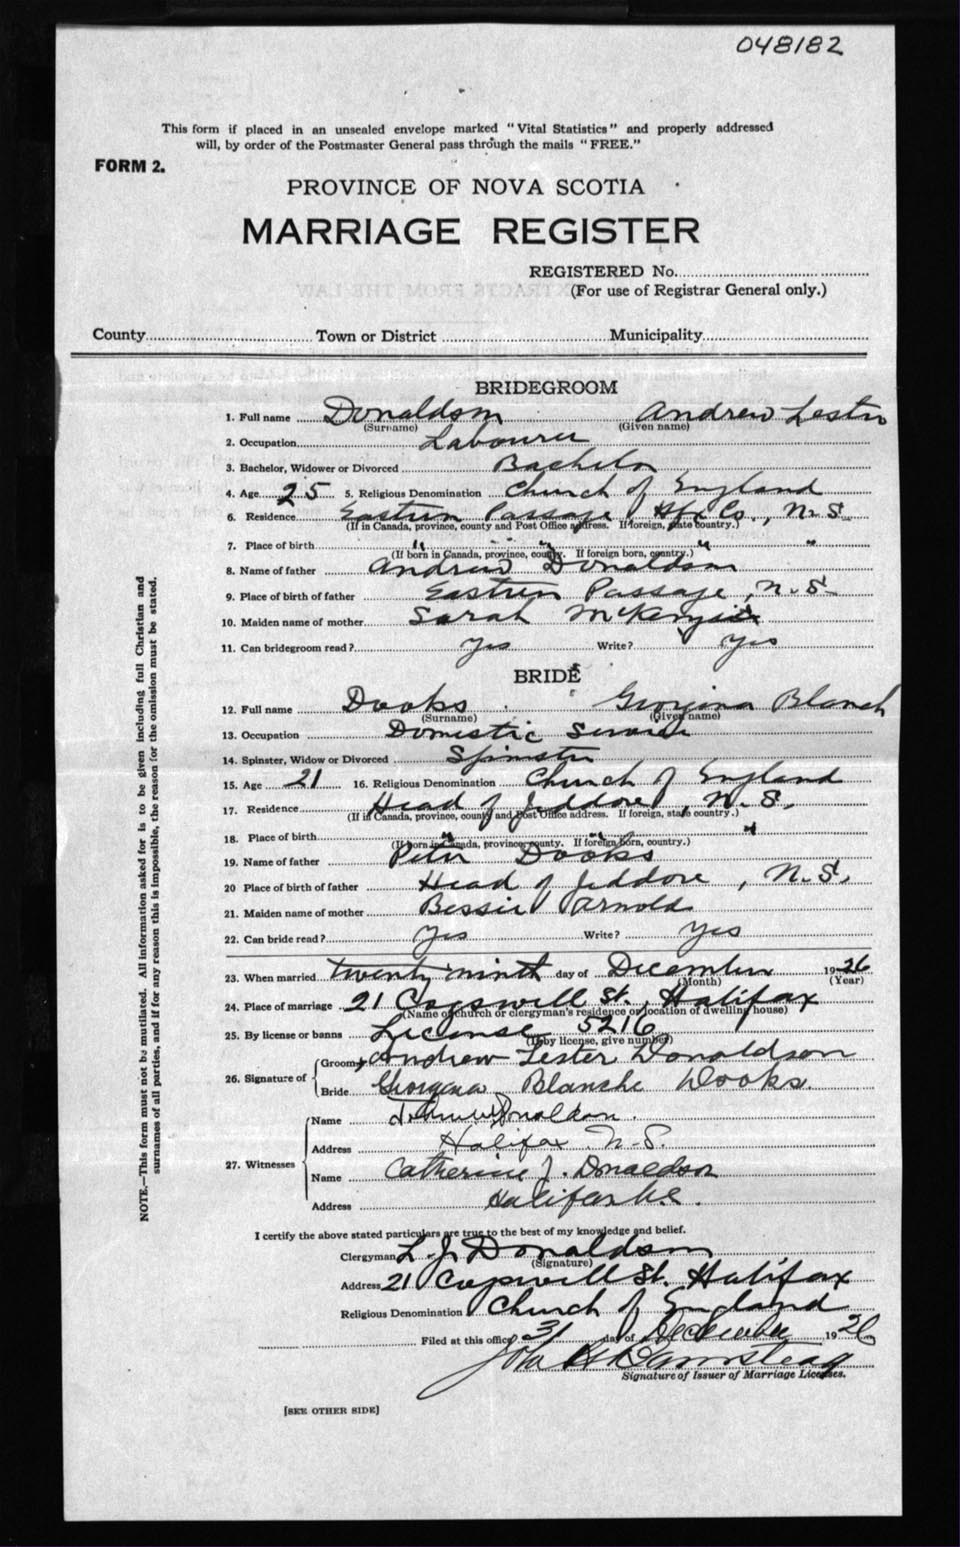 048182
This form if placed in an unsealed envelope marked "Vital Statistics" and properly addressed
will, by order of the Postmaster General pass through the mails "FREE."
FORM 2.
PROVINCE OF NOVA SCOTIA
MARRIAGE REGISTER
REGISTERED No.
(For use of Registrar General only.)
County Town or District Municipality
BRIDEGROOM
1. Full name Donaldson Andrew Lester
(Surname) (Given name)
2. Occupation Labourer
3. Bachelor, Widower or Divorced Bachelor
4. Age 25 5. Religious Denomination Church of England
6. Residence Eastern Passage, Hfx Co., N.S.
(If in Canada, province, county and Post Office address. If foreign, state country.)
7. Place of birth " " " " "
(If born in Canada, province, county. If foreign born, country.)
8. Name of father Andrew Donaldson
9. Place of birth of father Eastern Passage, N.S.
10. Maiden name of mother Sarah McKenzie
11. Can bridegroom read? Yes Write? Yes
BRIDE
12. Full name Dooks Georgina Blanch
(Surname) (Given name)
13. Occupation Domestic Service
14. Spinster, Widow or Divorced Spinster
15. Age 21 16. Religious Denomination Church of England
17. Residence Head of Jeddore, N.S.
(If in Canada, province, county and Post Office address. If foreign, state country.)
18. Place of birth " " "
(If born in Canada, province, county. If foreign born, country.)
19. Name of father Peter Dooks
20 Place of birth of father Head of Jeddore, N.S.
21. Maiden name of mother Bessie Arnold
22. Can bride read? Yes Write? Yes
23. When married twenty ninth day of December 1926
(Month) (Year)
24. Place of marriage 21 Cogswell St., Halifax
(Name of church or clergyman's residence or location of dwelling house)
25. By license or banns License 5216
(If by license, give number)
26. Signature of Groom Andrew Lester Donaldson
Bride Georgena Blanche Dooks.
27. Witnesses Name Donaldson.
Address Halifax N.S.
Name Catherine J. Donaldson
Address Halifax N.S.
I certify the above stated particulars are true to the best of my knowledge and belief.
Clergyman L. J. Donaldson
(Signature)
Address 21 Cogswell St. Halifax
Religious Denomination Church of England
Filed at this office 31 day of December 1926
John Barnstead
Signature of Issuer of Marriage Licenses.
[SEE OTHER SIDE]
NOTE.—This form must not be mutilated. All information asked for is to be given including full Christian and
surnames of all parties, and if for any reason this is impossible, the reason for the omission must be stated.